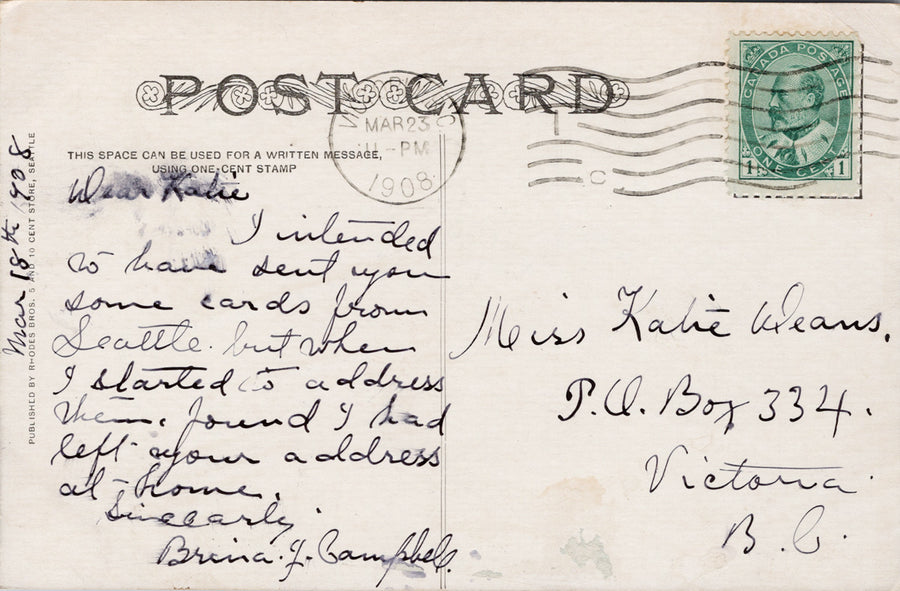 POST CARD
CANADA POSTAGE
ONE CENT
1 1
VICTORIA
MAR 23
11-PM
1908
C
THIS SPACE CAN BE USED FOR A WRITTEN MESSAGE,
USING ONE-CENT STAMP
PUBLISHED BY RHODES BROS. 5 AND 10 CENT STORE, SEATTLE
Mar 18th 1908
Dear Katie
I intended
to have sent you
some cards from
Seattle. but when
I started to address
them. found I had
left your address
at home.
Sincearly.
Campbell.
Miss Katie Deans.
P.O. Box 334.
Victoria.
B.C.